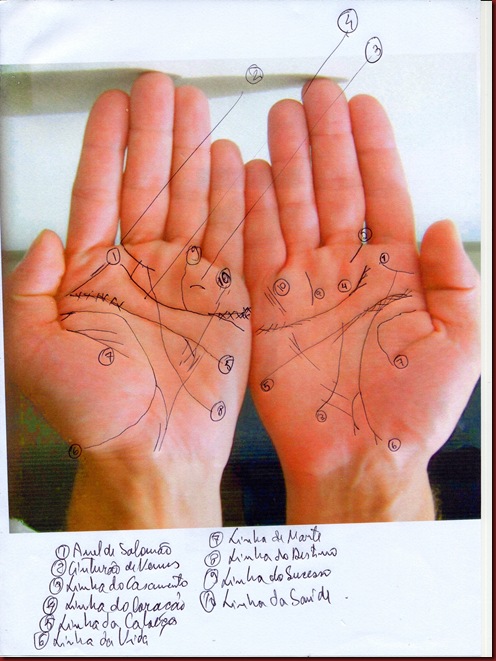 4
3
2
2
1
9
1
10
10
4
7
5
7
5
8
6
6
① Anel de Salomão
② Cinturão de Venus
③ Linha do Casamento
④ Linha do Coração
⑤ Linha da Cabeça
⑥ Linha da Vida
⑦ Linha de Marte
⑧ Linha do Destino
⑨ Linha do Sucesso
⑩ Linha da Saúde.